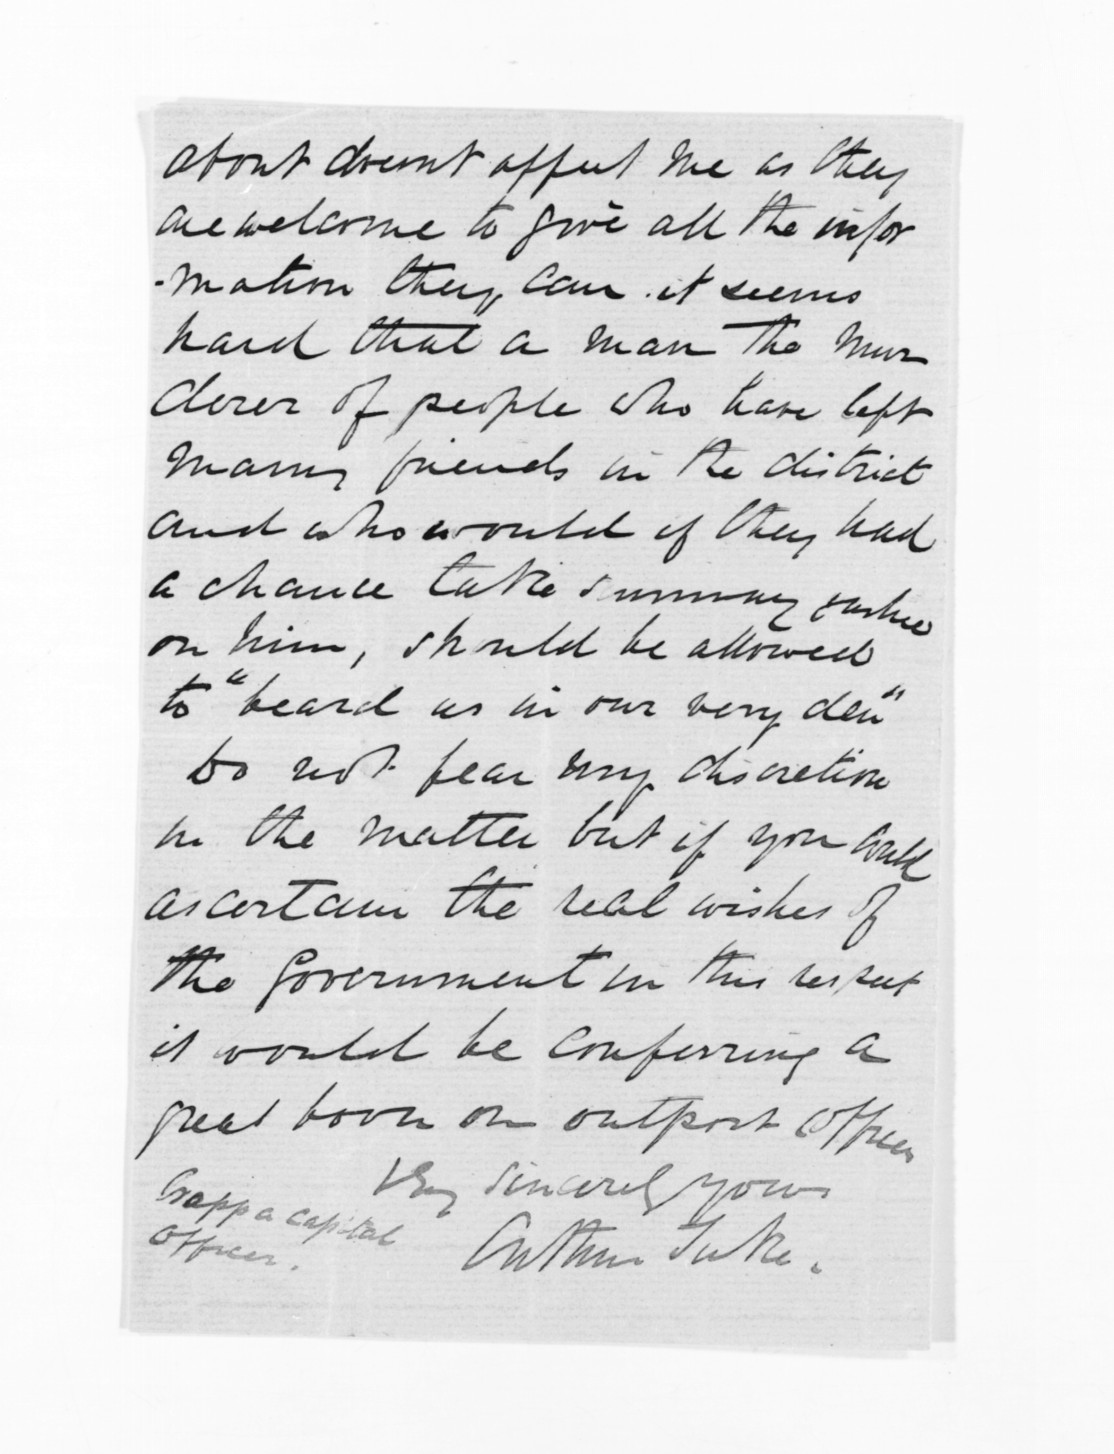 about doesnt affect me as they
are welcome to give all the infor
-mation they can. it seems
hard that a man the mur
derer of people who have left
many friends in the district
and who would if they had
a chance take summary justice
on him, should be allowed
to "beard us in our very den"
Do not fear my discretion
in the matter but if you could
ascertain the real wishes of
the Government in this respect
it would be conferring a
great boon on outpost officers
Very sincerely yours
Arthur Tuke.
Crapp a capital
officer.